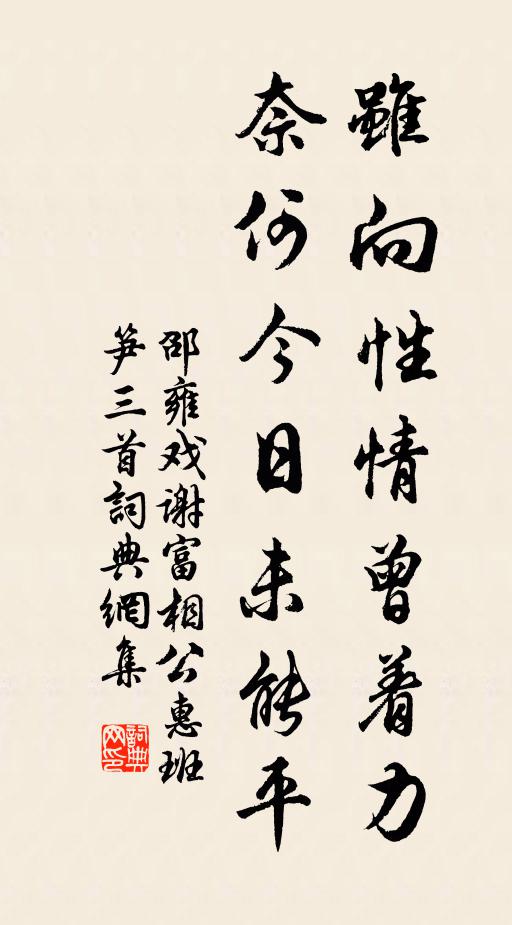 雖向性情曾着力
奈何今日未能平
邵雍戏谢富相公惠班
笋三首詞典網集
詞典
网印